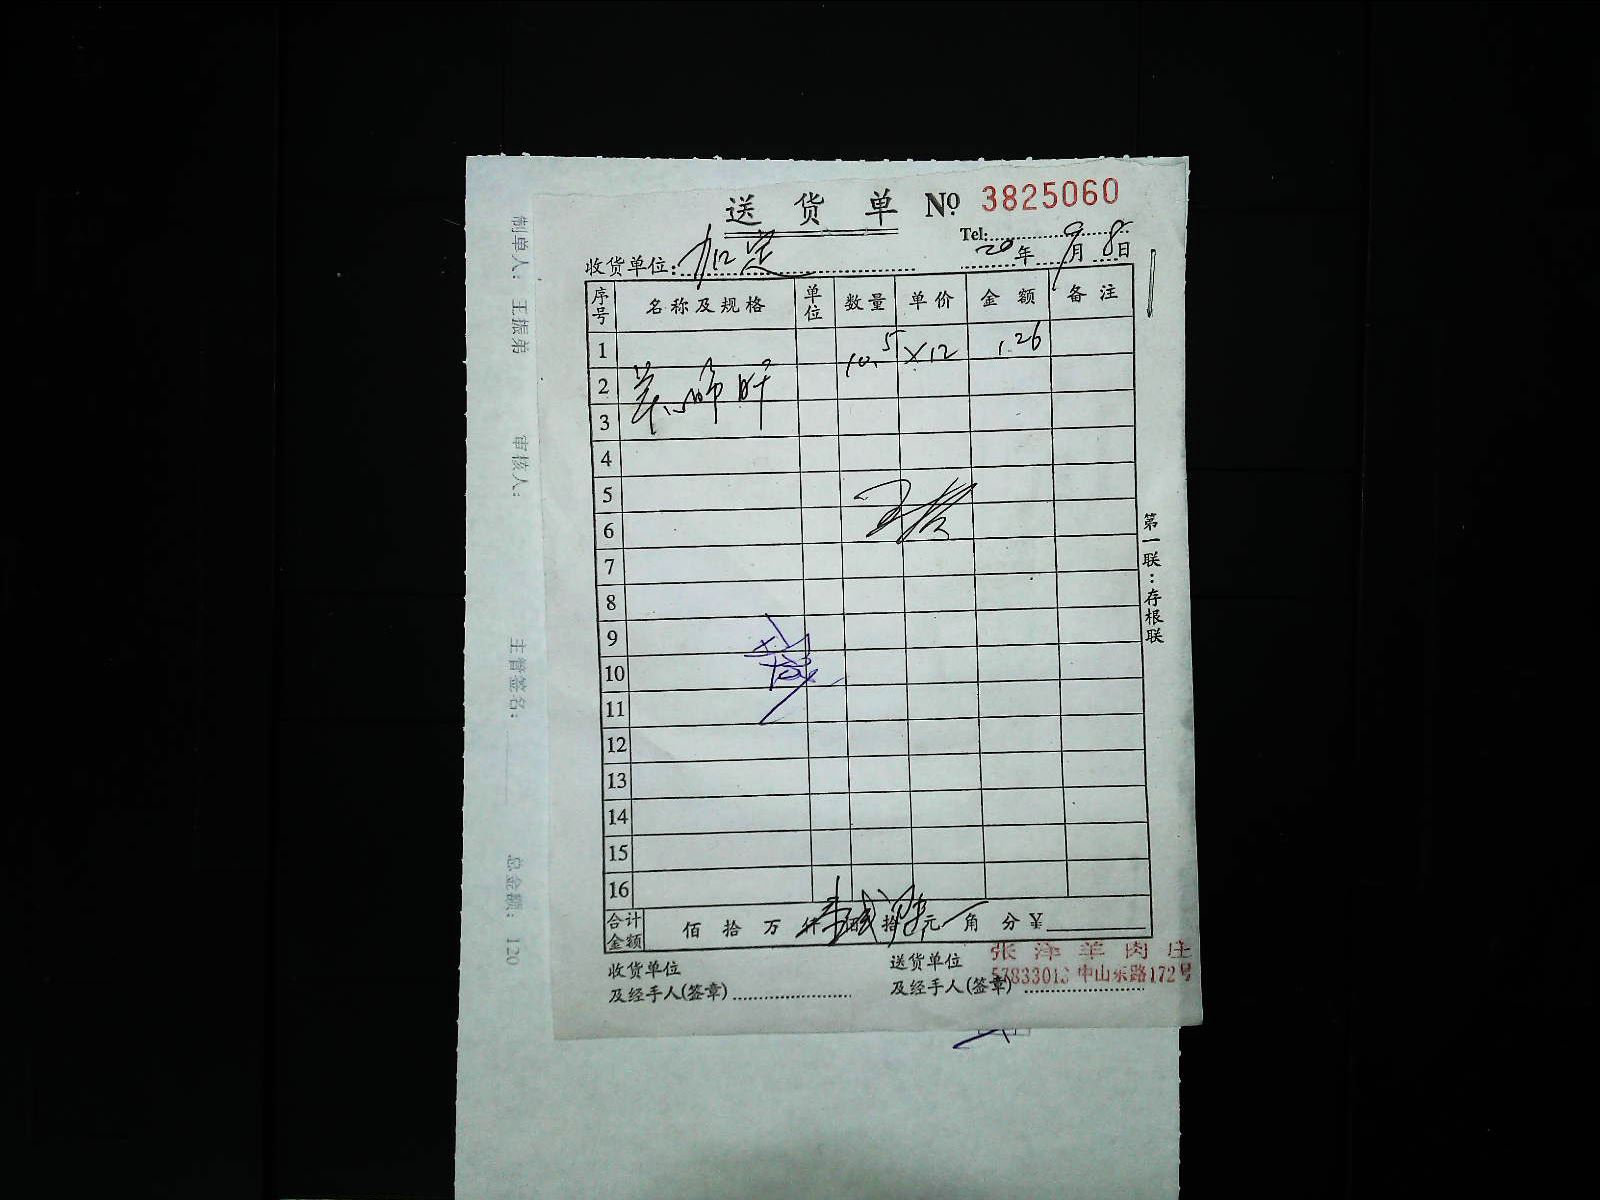 送货单 No 3825060
Tel:
收货单位: 20年9月8日
序号 名称及规格 单位 数量 单价 金额 备注
1 10.5 ×12 1.26
2
3
4
5
6
7
8
9
10
11
12
13
14
15
16
合计金额 佰 拾 万 仟 佰 拾 元 角 分 ¥
收货单位 送货单位 张泽羊肉庄
及经手人(签章) 及经手人(签章) 57833013 中山东路172号
第一联:存根联
制单人: 王振弟 审核人: 主管签名: 总金额: 120